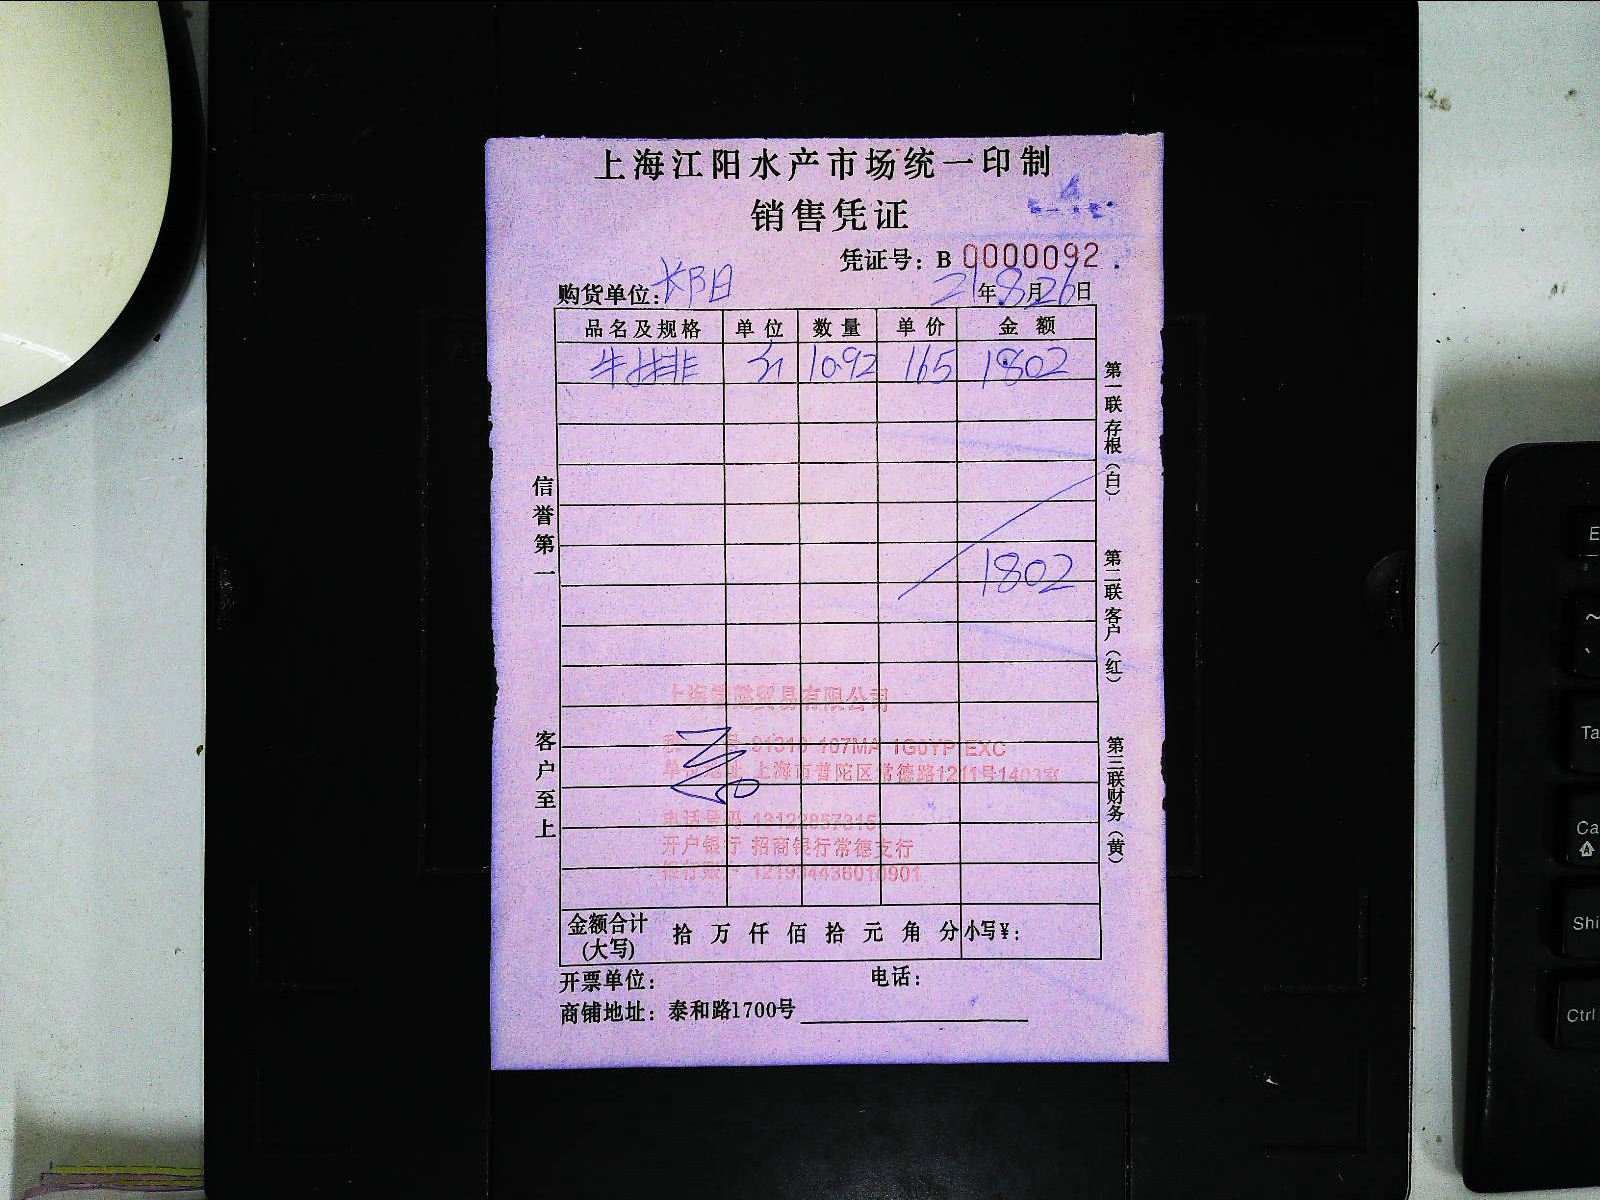 上海江阳水产市场统一印制
销售凭证
凭证号：B 0000092
购货单位：长阳 21年8月26日
品名及规格 单位 数量 单价 金额
牛排 斤 10.92 165 1802
1802
信誉第一
客户至上
第一联存根（白）
第二联客户（红）
第三联财务（黄）
贸易有限公司
单位地址 上海市普陀区常德路1211号1403室
电话号码 13122857315
开户银行 招商银行常德支行
银行账户 121934436010901
金额合计(大写) 拾 万 仟 佰 拾 元 角 分 小写¥：
开票单位： 电话：
商铺地址：泰和路1700号
E
~
Ta
Ca
Shi
Ctrl